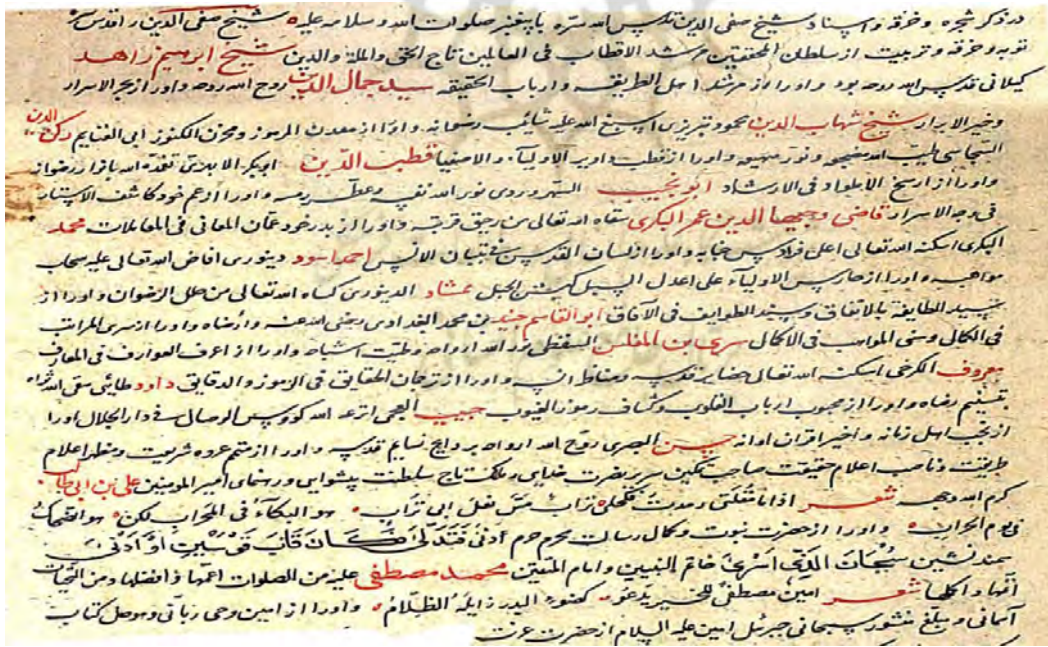 در ذکر شجره و خرقه و اسناد شیخ صفی الدین قدس الله سره با پیغمبر صلوات الله و سلامه علیه شیخ صفی الدین را قدس سره
توبه و خرقه و تربیت از سلطان المحققین مرشد الاقطاب فی العالمین تاج الحق والملة والدین شیخ ابرهیم زاهد
کیلانی قدس الله روحه بود و اورا از مرشد اهل الطریقه و ارباب الحقیقه سید جمال الدین روح الله روحه و اورا از بحر الاسرار
وخیر الابرار شیخ شهاب الدین محمود تبریزی اسبغ الله علیه شآبیب رضوانه و اورا از معدن الرموز ومخزن الکنوز ابی الغنایم رکن الدین
السجاسی طیب الله مضجعه و نور مهجعه و اورا از قطب دایره الاولیاء والاصفیا قطب الدین ابوبکر الابهری تغمده الله بانوار رضوانه
و اورا از ارسخ الاطواد فی الارشاد ابو نجیب السهروردی نور الله نفسه وعطر رمسه و اورا از عم خود کاشف الاستار
فی وجه الاسرار قاضی وجیه الدین عمر البکری سقاه الله تعالی من رحیق قربه و اورا از پدر خود عمان المعانی فی المعاملات محمد
البکری اسکنه الله تعالی اعلی فرادیس جنابه و اورا از لسان القدس فی تبیان الانس احمد اسود دینوری افاض الله تعالی علیه سحاب
مواهبه و اورا از حارس الاولیاء علی اعدل السبل ممشاد الدینوری کساه الله تعالی من حلل الرضوان و اورا از
سید الطایفة بالاتفاق وسند الطوایف فی الآفاق ابو القاسم جنید بن محمد البغدادی رضی الله عنه وارضاه و اورا از سری المراتب
فی الکمال وسنی المواهب فی الاکمال سری بن المغلس السقطی الله ارواحه وطیب اشباحه و اورا از اعرف العوارف فی المعارف
معروف الکرخی اسکنه الله تعالی حضایر قدسه و انسه و اورا از ترجمان الحقایق فی الرموز والدقایق داود طائی سقی الله ثراه
بتسنیم رضاه و اورا از محبوب ارباب القلوب وکشاف رموز الغیوب حبیب العجمی اترعه الله کووس الوصال فی دار الجلال اورا
از نخب اهل زمانه و اخیر اقران اوانه حسن البصری روح الله ارواحه بروایح نسایم قدسه و اورا از متمم عروه شریعت ومظهر اعلام
طریقت وناصب اعلام حقیقت صاحب تمکین سریر حضرت خدای و ملک تاج سلطنت پیشوایی و رهنمای امیر المومنین علی بن ابی طالب
کرم الله وجهه شعر اذا ما مقلتی رمدت فکحلی تراب مس نعل ابی تراب هو البکاء فی المحراب لکن هو الضحاک
فی یوم الحراب و اورا از حضرت نبوت وکمال رسالت محرم حرم ادنی فتدلی فکان قاب قوسین أو أدنی
سبحان الذی اسری خاتم النبیین وامام المتقین محمد مصطفی علیه من الصلوات اعمها وافضلها ومن التحیات
اتمها و اکملها شعر امین مصطفی للخیر یدعو کضوء البدر زایله الظلام و اورا از امین وحی ربانی وموصل کتاب
آسمانی و مبلغ منشور سبحانی جبرئیل امین علیه السلام از حضرت عزت